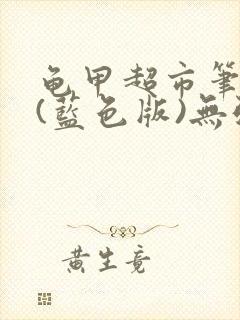 龟甲超市筆
(藍色版)無
黄生竟